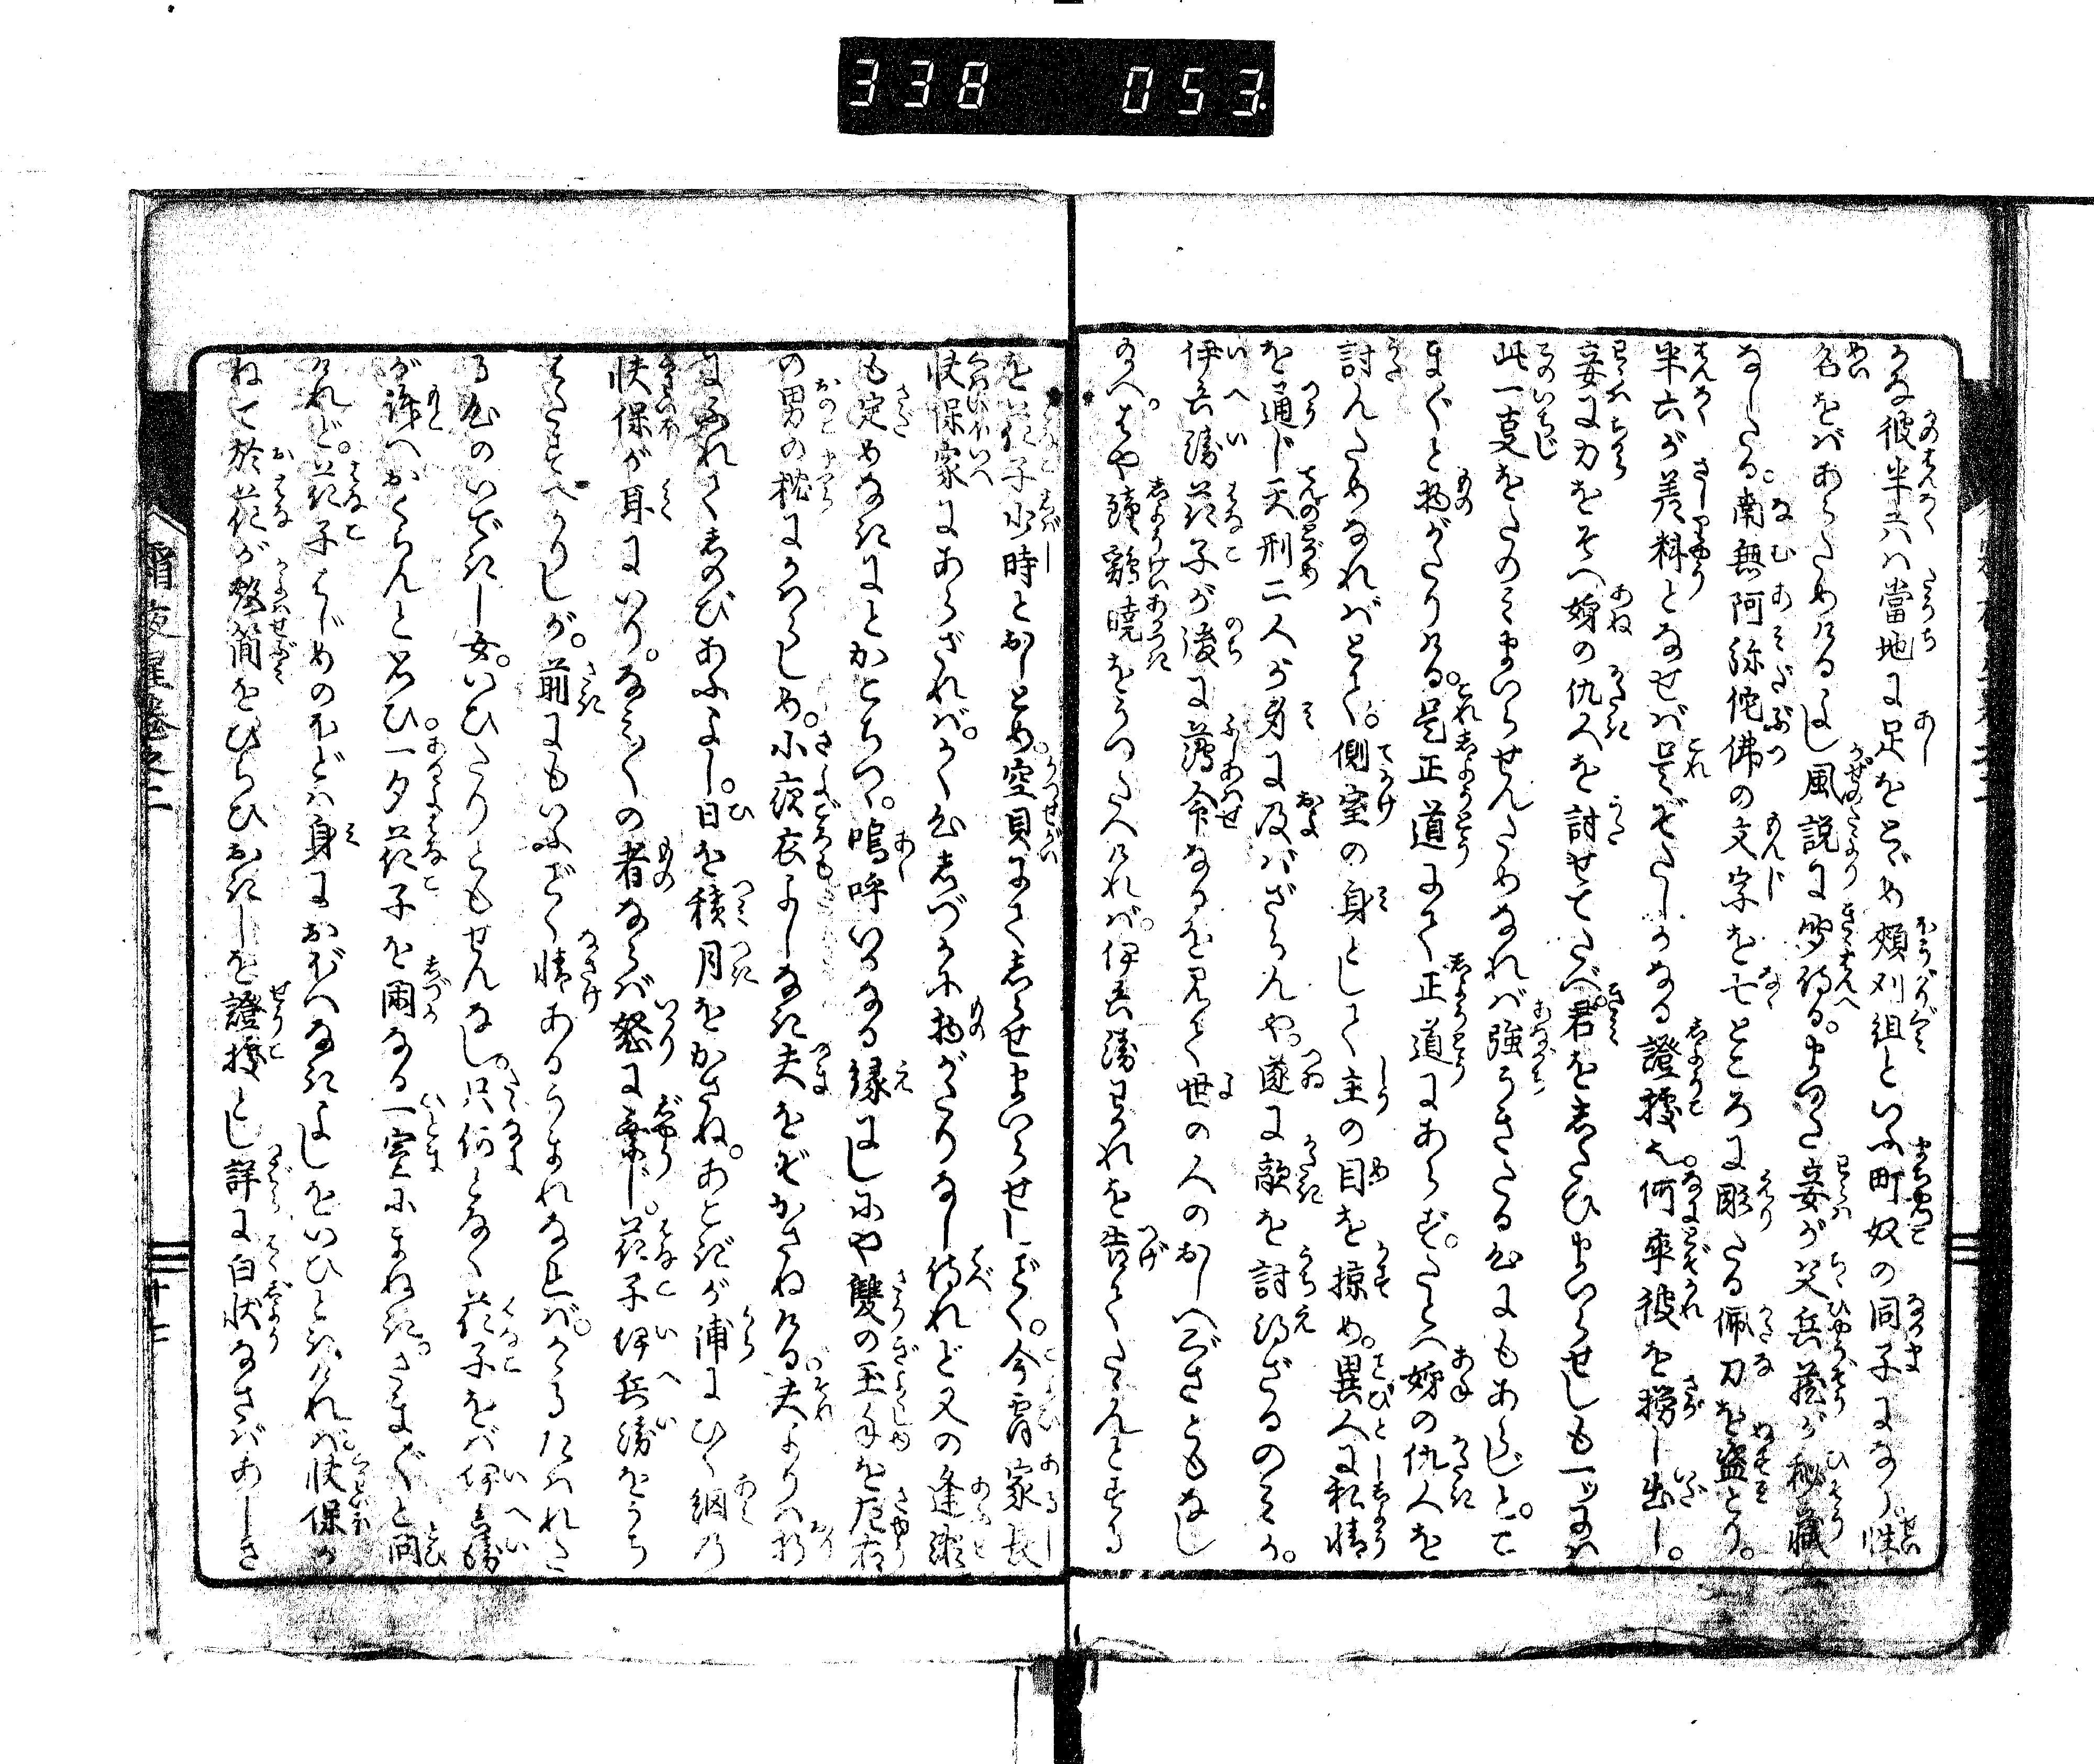 338 053.
うな彼半六ハ當地に足をとゞめ頬刈組といふ町奴の同子になり。性
名をバあらためけるよし風説に聞侍る。まつた妾が父兵蔵が秘藏
なしたる。南無阿弥佗佛の文字を七ところに彫たる佩刀を盗とり。
半六が差料となせバ是ぞたしかなる證據也。何卒彼を搦し出し。
妾に力をそへ姉の仇人を討せてたべ。君をしたひまいらせしも一ツにハ
此一叓をたのミまいらせんためなれバ強うきたる心にもあらじと。亡
まぐと物がたりける。是正道にて正道にあらず。たとへ姉の仇人を
討んためなれバとて。側室の身として主の目を掠め。異人に私情
を通じ天刑二人が身に及バざらんや。遂に敵を討得ざるのミか。
伊兵衛花子が後に薄命なるを見て世の人のおしへぐさともなし
給へ。はや鐘鷄暁をうつたへけれバ。伊兵衛わかれを告てたゝんとする
を花子少時とおしとめ。空貝にてしらせまいらせしごとく。今宵家長
快保家にあらざれバ。かく心しづかに物がたりなし侍れど又の逢瀬
も定めなきにとかこちつ。嗚呼いかなる縁にしにや雙の玉手を左右
の男の枕にかハらしめ。小夜衣よしなき夫をぞかさねける夫よりハ折
にふれてしのびあふよし。日を積月をかさね。あとぎが浦にひく網乃
快保が耳にいり。なミ〳〵の者ならバ怒に乗じ。花子伊兵衛をうち
はたすべかりしが。前にもいふごとく情あるうまれなれバ。かゝるたハれた
る心のいできし女。いひたりともせんなし。只何となく花子をバ伊兵衛
が許へおくらんと思ひ。一夕花子を閑なる一室にまねき。さまざまと問
けれど。花子はじめのほどハ身におぼへなきよしをいひときけれバ快保か
ねて於花が艶簡をひろひおきしを證據とし詳に白状なさバあしき
霜夜星巻之二
十七